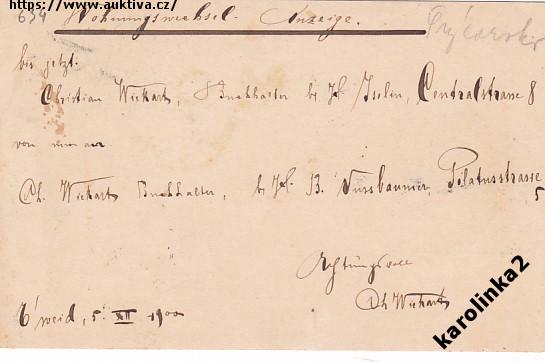 https://www.auktiva.cz/
634 Wohnungswechsel - Anzeige.
bis jetzt.
Christian Wickart, Buchhalter bei Iselin, Centralstrasse 8
von nun an
Ch. Wickart Buchhalter, bei B. Nussbaumer, Pilatusstrasse
5
Achtungsvoll
Ch Wickart
5. XII 1900
karolinka2